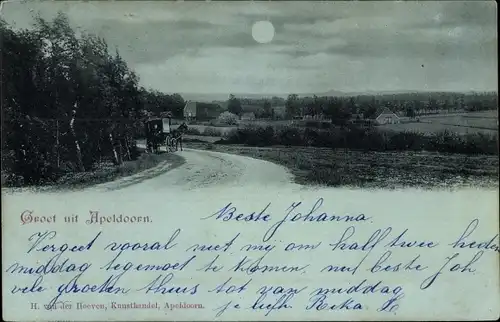 Groet uit Apeldoorn.
Beste Johanna
Vergeet vooral niet mij om half twee heden
middag tegemoet te komen, nu beste Joh
vele groeten thuis tot van middag
je liefh Rika
H. van der Heeven, Kunsthandel, Apeldoorn.